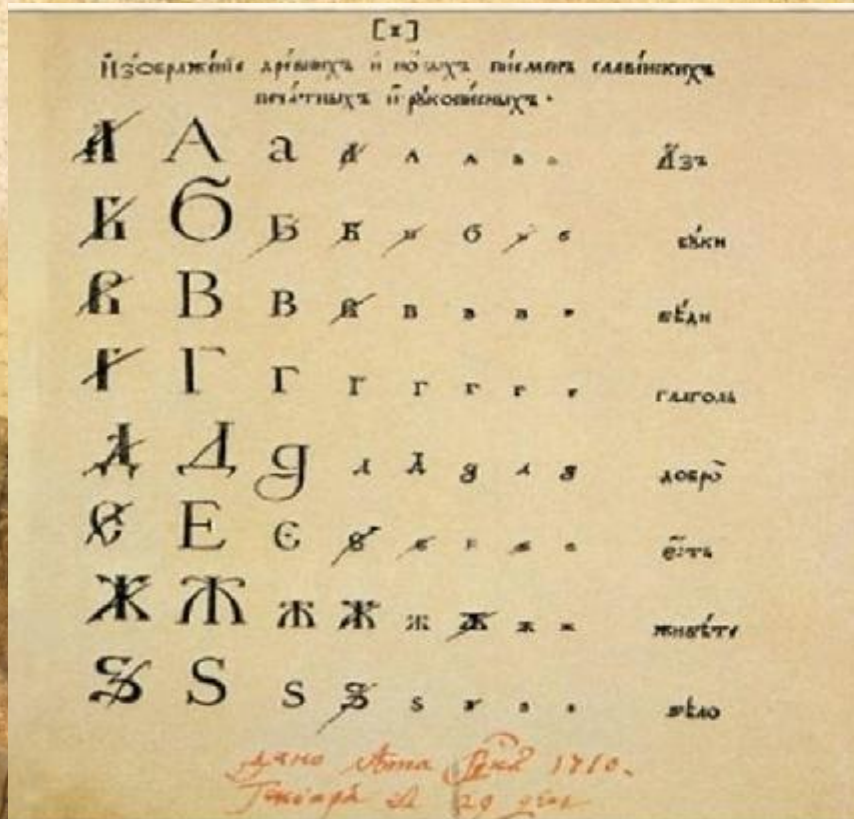 [1]
Изображенїе древнихъ и новыхъ писменъ славенскихъ
печатныхъ и рукописныхъ.
А А а А А А а а Азъ
Б Б Б Б б б б б буки
В В В В В В В в вѣди
Г Г Г Г Г Г Г г глаголь
Д Д д д Д д д д добро
Є Е є є є е є е есть
Ж Ж Ж Ж ж Ж ж ж живѣте
Ѕ Ѕ Ѕ Ѕ ѕ ѕ ѕ ѕ ѕѣло
дано лѣта 1710.
Генваря 29 день